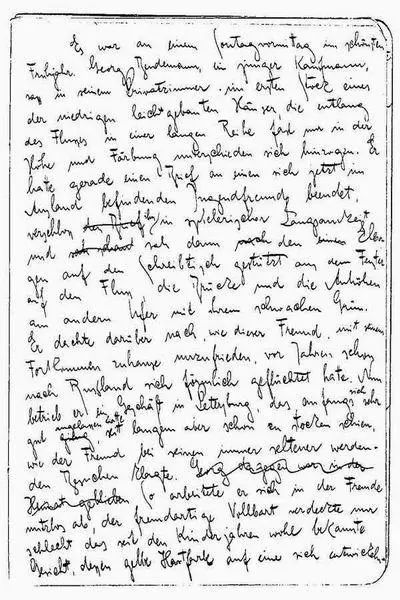 Es war an einem Sonntagvormittag im schönsten
Frühjahr. Georg Bendemann, ein junger Kaufmann,
sass in seinem Privatzimmer im ersten Stock eines
der niedrigen leicht gebauten Häuser, die entlang
des Flusses in einer langen Reihe fast nur in der
Höhe und Färbung unterschieden sich hinzogen. Er
hatte gerade einen Brief an einen sich jetzt im
Ausland befindenden Jugendfreund beendet,
verschloss den Brief ihn in spielerischer Langsamkeit
und sah dann den Elbo
gen auf den Schreibtisch gestützt aus dem Fenster
auf den Fluss die Brücke und die Anhöhen
am andern Ufer mit ihrem schwachen Grün.
Er dachte darüber nach, wie dieser Freund, mit seinem
Fortkommen zuhause unzufrieden, vor Jahren schon
nach Russland sich förmlich geflüchtet hatte. Nun
betrieb er ein Geschäft in Petersburg, das anfangs sich sehr
gut angelassen hatte seit langem aber schon zu stocken schien,
wie der Freund bei seinen immer seltener werden-
den Besuchen klagte. Georg dagegen war in der
Heimat geblieben So arbeitete er sich in der Fremde
nutzlos ab, der fremdartige Vollbart verdeckte nur
schlecht das seit den Kinderjahren wohl bekannte
Gesicht, dessen gelbe Hautfarbe auf eine sich entwickeln-